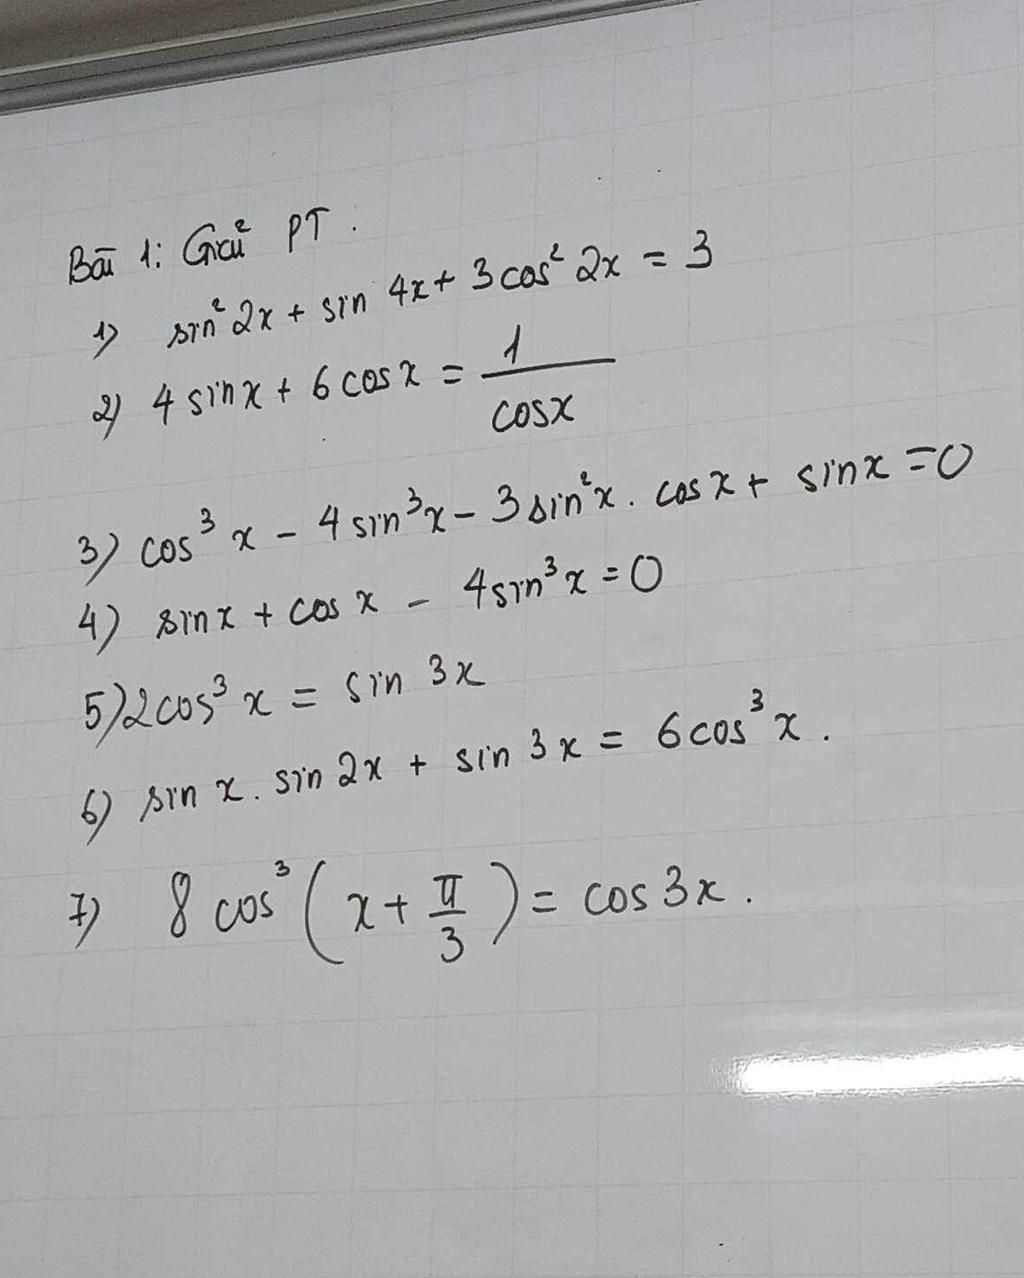 Bài 1: Giải PT.
1) sin² 2x + sin 4x + 3 cos² 2x = 3
2) 4 sin x + 6 cos x = 1/cos x
3) cos³ x - 4 sin³ x - 3 sin² x . cos x + sin x = 0
4) sin x + cos x - 4 sin³ x = 0
5) 2 cos³ x = sin 3x
6) sin x . sin 2x + sin 3x = 6 cos³ x .
7) 8 cos³ (x + π/3) = cos 3x .